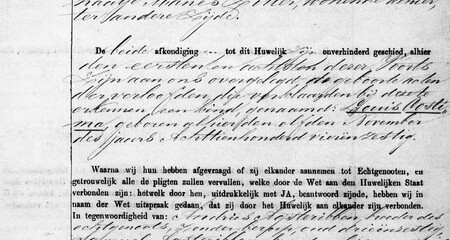 ter andere Zijde.
De beide afkondigingen tot dit Huwelijk zijn onverhinderd geschied, alhier
den eersten en den achtsten dezer,
Zijn aan ons overgelegd, de geboorte acten
der verloofden, die verklaarden bij deze te
erkennen een kind genaamd: Louis
geboren alhier den November
des jaars Achttienhonderd vierenzestig.
Waarna wij hun hebben afgevraagd of zij elkander aannemen tot Echtgenooten, en
getrouwelijk alle de pligten zullen vervullen, welke door de Wet aan den Huwelijken Staat
verbonden zijn: hetwelk door hen, uitdrukkelijk met JA, beantwoord zijnde, hebben wij in
naam der Wet uitspraak gedaan, dat zij door het Huwelijk aan elkander zijn verbonden.
In tegenwoordigheid van: Andries broeder des
echtgenoots, zonder beroep, oud drieenzestig